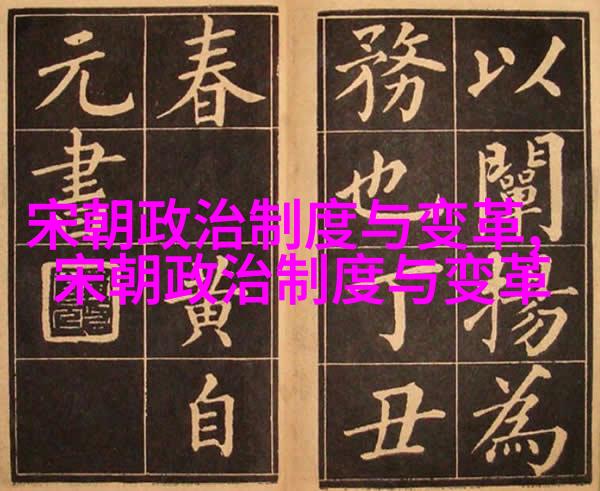 宋朝政治制度与变革,
宋朝政治制度与变革
以闡揚為
務也丁丑
春黃自
元書